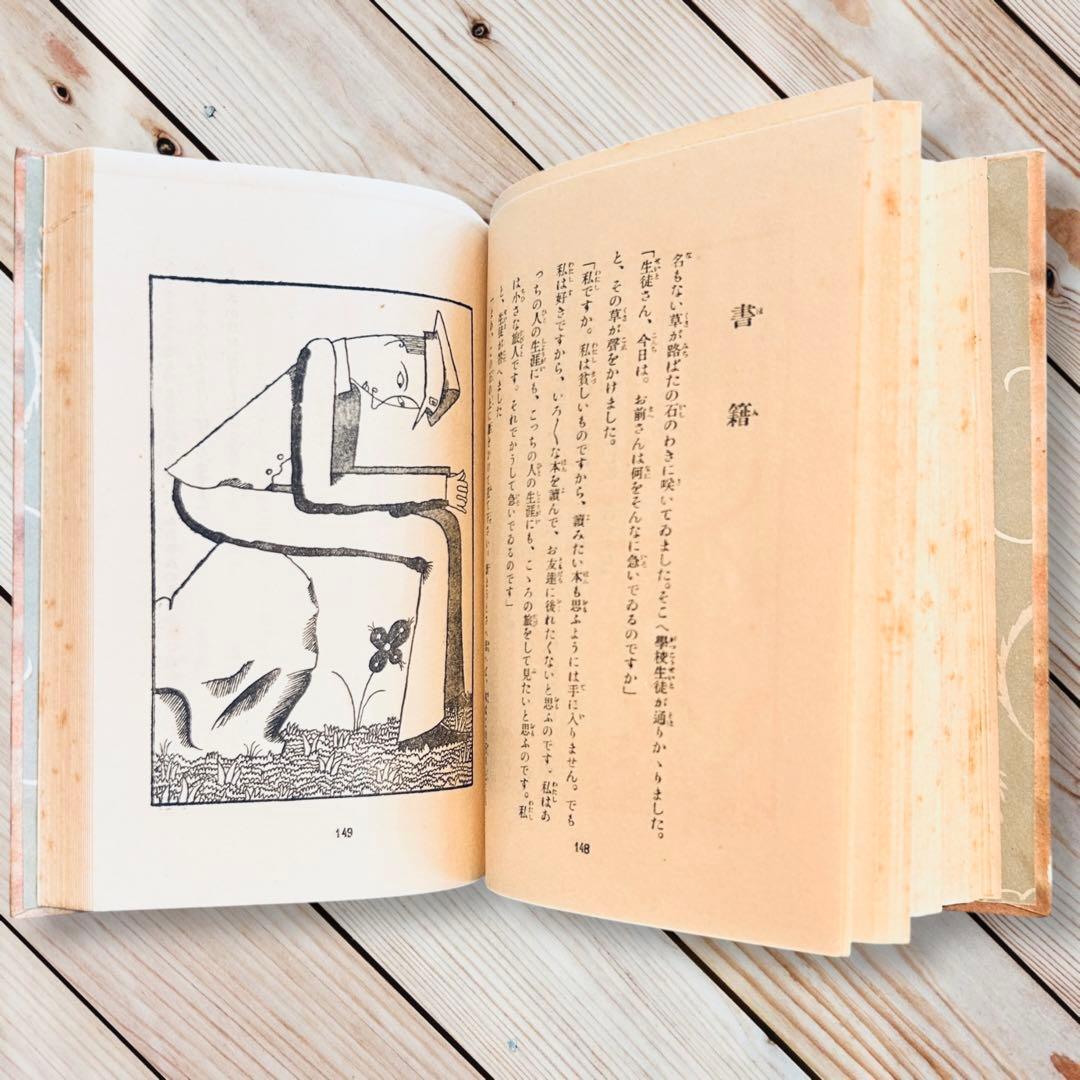 書籍
名もない草が路ばたの石のわきに咲いてゐました。そこへ學校生徒が通りかゝりました。
「生徒さん、今日は。お前さんは何をそんなに急いでゐるのですか」
と、その草が聲をかけました。
「私ですか。私は貧しいものですから、讀みたい本も思ふようには手に入りません。でも
私は好きですから、いろ〳〵な本を讀んで、お友達に後れたくないと思ふのです。私はあ
つちの人の生涯にも、こつちの人の生涯にも、こゝろの旅をして見たいと思ふのです。私
は小さな旅人です。それでかうして急いでゐるのです」
と、生徒が答へました
148
149